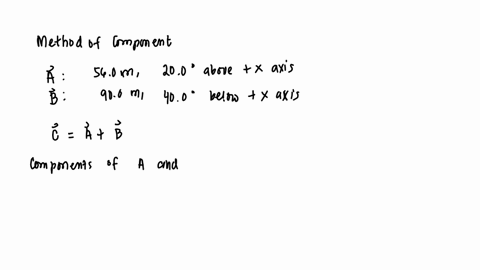 Method of Component
A⃗ : 56.0 m, 20.0° above +x axis
B⃗ : 90.0 m, 40.0° below +x axis
C⃗ = A⃗ + B⃗
Components of A and